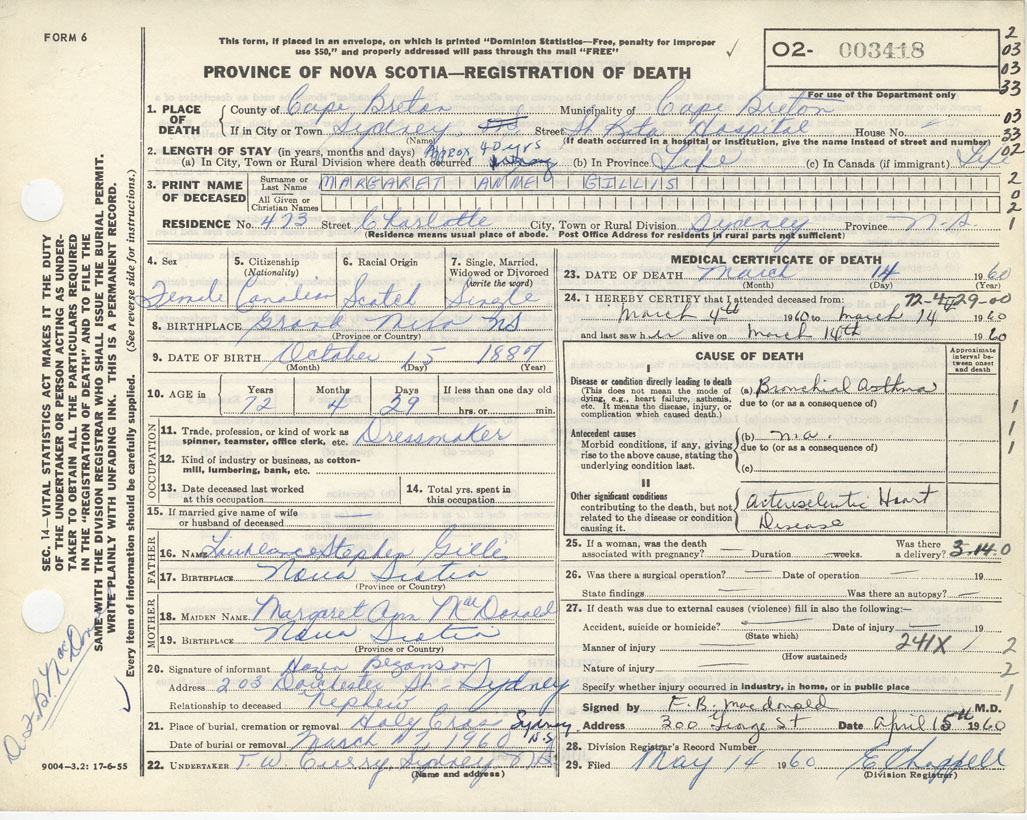 FORM 6
This form, if placed in an envelope, on which is printed "Dominion Statistics—Free, penalty for improper
use $50," and properly addressed will pass through the mail "FREE"
PROVINCE OF NOVA SCOTIA—REGISTRATION OF DEATH
02- 003418
For use of the Department only
2
03
03
33
03
33
02
02
2
0
2
1
1. PLACE OF DEATH
County of Cape Breton Municipality of Cape Breton
If in City or Town Sydney, Street St Rita Hospital House No. –
(Name) (If death occurred in a hospital or institution, give the name instead of street and number)
2. LENGTH OF STAY (in years, months and days) Approx 40 yrs
(a) In City, Town or Rural Division where death occurred (b) In Province Life (c) In Canada (if immigrant) Life
3. PRINT NAME OF DECEASED
Surname or Last Name MARGARET ANNE GILLIS
All Given or Christian Names
RESIDENCE No. 473 Street Charlotte City, Town or Rural Division Sydney Province N.S.
(Residence means usual place of abode. Post Office Address for residents in rural parts not sufficient)
4. Sex 5. Citizenship (Nationality) 6. Racial Origin 7. Single, Married, Widowed or Divorced (write the word)
Female Canadian Scotch Single
8. BIRTHPLACE Grand NS
(Province or Country)
9. DATE OF BIRTH October 15 1887
(Month) (Day) (Year)
10. AGE in Years Months Days If less than one day old
72 4 29 hrs. or min.
OCCUPATION
11. Trade, profession, or kind of work as spinner, teamster, office clerk, etc. Dressmaker
12. Kind of industry or business, as cotton-mill, lumbering, bank, etc.
13. Date deceased last worked at this occupation
14. Total yrs. spent in this occupation
15. If married give name of wife or husband of deceased —
FATHER
16. NAME Stephen Gillis
17. BIRTHPLACE Nova Scotia
(Province or Country)
MOTHER
18. MAIDEN NAME Margaret Ann MacDonald
19. BIRTHPLACE Nova Scotia
(Province or Country)
20. Signature of informant Bezanson
Address 203 Dorchester St- Sydney
Relationship to deceased Nephew
21. Place of burial, cremation or removal Holy Cross Sydney N.S.
Date of burial or removal March 17, 1960
22. UNDERTAKER T W Curry Sydney N.S.
(Name and address)
MEDICAL CERTIFICATE OF DEATH
23. DATE OF DEATH March 14 1960
(Month) (Day) (Year)
24. I HEREBY CERTIFY that I attended deceased from: 72-4-29-00
March 4th 1960 to March 14 1960
and last saw her alive on March 14th 1960
CAUSE OF DEATH
Approximate interval between onset and death
I
Disease or condition directly leading to death
(This does not mean the mode of dying, e.g., heart failure, asthenia, etc. It means the disease, injury, or complication which caused death.)
(a) Bronchial Asthma
due to (or as a consequence of)
Antecedent causes
Morbid conditions, if any, giving rise to the above cause, stating the underlying condition last.
(b) n.a.
due to (or as a consequence of)
(c)
II
Other significant conditions contributing to the death, but not related to the disease or condition causing it.
Arteriosclerotic Heart
Disease
1
1
1
25. If a woman, was the death associated with pregnancy? — Duration — weeks. Was there a delivery? 3.14.0
26. Was there a surgical operation? — Date of operation — 19
State findings — Was there an autopsy? –
27. If death was due to external causes (violence) fill in also the following:—
Accident, suicide or homicide? — Date of injury — 19
(State which)
Manner of injury — 241X 1 2
(How sustained)
Nature of injury — 2
Specify whether injury occurred in industry, in home, or in public place 1
Signed by F. B. MacDonald M.D.
Address 300 George St Date April 15th 1960
28. Division Registrar's Record Number
29. Filed May 14 1960 E Chappell
(Division Registrar)
SEC. 14—VITAL STATISTICS ACT MAKES IT THE DUTY
OF THE UNDERTAKER OR PERSON ACTING AS UNDER-
TAKER TO OBTAIN ALL THE PARTICULARS REQUIRED
IN THE "REGISTRATION OF DEATH" AND TO FILE THE
SAME WITH THE DIVISION REGISTRAR WHO SHALL ISSUE THE BURIAL PERMIT.
WRITE PLAINLY WITH UNFADING INK. THIS IS A PERMANENT RECORD.
Every item of information should be carefully supplied. (See reverse side for instructions.)
9004-3.2: 17-6-55